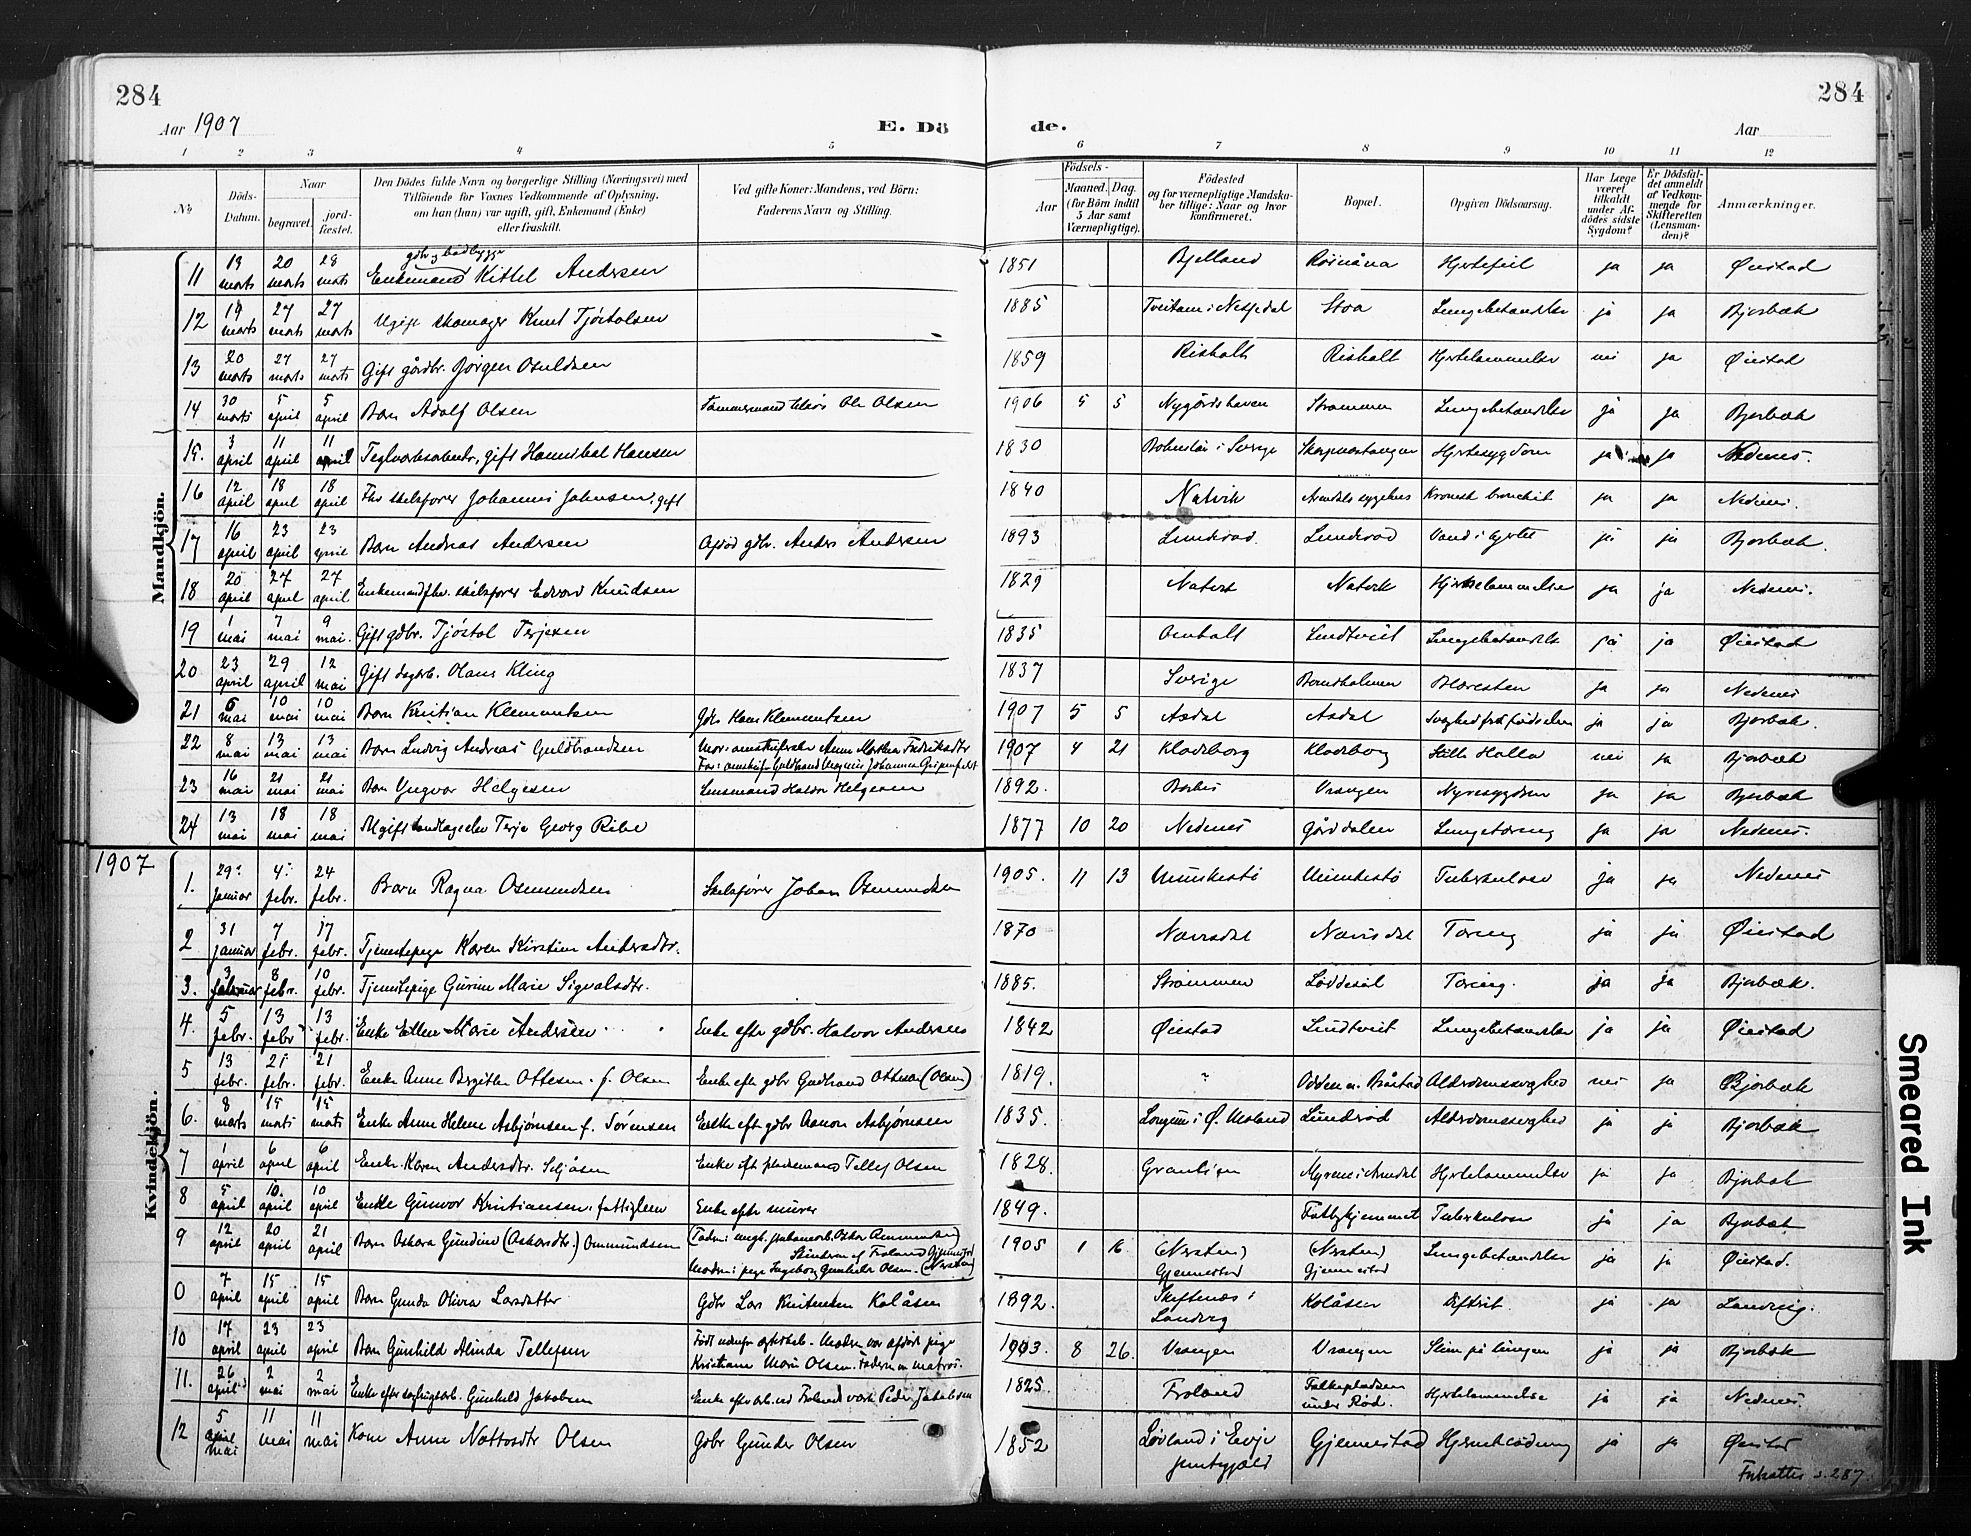 284
284
Aar 1907
E. Dö
de.
Aar
1 2 3 4 5 6 7 8 9 10 11 12
No
Döds-Datum.
Naar
begravet.
jord-fæstet.
Den Dödes fulde Navn og borgerlige Stilling (Næringsvei) med
Tilföiende for Voxnes Vedkommende af Oplysning,
om han (hun) var ugift, gift, Enkemand (Enke)
eller fraskilt.
Ved gifte Koner: Mandens, ved Börn:
Faderens Navn og Stilling.
Födsels-
Aar
Maaned. Dag.
(for Börn indtil
5 Aar samt
Værnepligtige).
Födested
og for værnepligtige Mandska-
ber tillige: Naar og hvor
konfirmeret.
Bopæl.
Opgiven Dödsaarsag.
Har Læge
været
tilkaldt
under Af-
dödes sidste
Sygdom?
Er Dödsfal-
det anmeldt
af Vedkom-
mende for
Skifteretten
(Lensman-
den)?
Anmærkninger.
Mandkjön.
11 13 marts 20 marts 28 marts Enkemand Kittel Andersen 1851 Bjelland Hjertefeil ja ja Øiestad
12 19 marts 27 marts 27 marts Ugift skomager Knut Tjöstolsen 1885 Stoa Lungebetændelse ja ja Bjorbæk
13 20 marts 27 marts 27 marts Gift gårdbr. Jörgen Osuldsen 1859 Risholt Risholt Hjertelammelse nei ja Øiestad
14 30 marts 5 april 5 april Barn Adolf Olsen Tømmermand Ole Olsen 1906 5 5 Nygårdshaven Strømmen Lungebetændelse ja ja Bjorbæk
15. 3 april 11 april 11 april gift Hannibal Hansen 1830 i Sverige Hjertesygdom ja ja Nedenes.
16 12 april 18 april 18 april Fhv skibsfører Johannes Johnsen, gift 1840 Natvik Arendals sygehus Kronisk bronchit ja ja Nedenes.
17 16 april 23 april 23 april Barn Andreas Andersen Afdöd gbr. Anders Andersen 1893 Lunderød Lunderød Vand i hjertet ja ja Bjorbæk.
18 20 april 27 april 27 april Enkemand fhv. skibsfører Edvard Knudsen 1829 Natvik Natvik Hjertelammelse ja ja Nedenes.
19 1 mai 7 mai 9 mai. Gift gbr. Tjöstol Terjesen 1835 Omholt Lindtveit Lungebetændelse ja ja Øiestad
20 23 april 29 april 12 mai Gift dagarb. Olaus Kling 1837 Sverige Bomsholmen Blæresten ja ja Nedenes
21 6 mai 10 mai 10 mai Barn Kristian Klementsen Gbr. Hans Klementsen 1907 5 5 Asdal Asdal Svaghed fra födselen ja ja Bjorbæk.
22 8 mai 13 mai 13 mai Barn Ludvig Andreas Guldbrandsen Mor: Anne Martha Fredriksdtr
Far: Guldbrand Magnus Johannes 1907 4 21 Kladeborg Kladeborg nei ja Bjorbæk
23 16 mai 21 mai 21 mai Barn Yngvar Helgesen Lensmand Helgesen 1892. Vrængen Nyresygdom ja ja Bjorbæk
24 13 mai 18 mai 18 mai Ugift Terje Georg Ribe 1877 10 20 Nedenes Gårddalen Lungetæring ja ja Nedenes.
1907
Kvindekjön.
1. 29 januar 4 febr. 24 febr. Barn Ragna Osmundsen Skibsfører Johan Osmundsen 1905. 11 13 Munkestø Munkestø Tuberkulose ja ja Nedenes
2 31 januar 7 febr. 17 febr. Tjenestepige Karen Kirstine Andersdtr. 1870 Nævisdal Nævisdal Tæring ja ja Øiestad
3. 3 februar 8 febr. 10 febr. Tjenestepige Gurine Marie Sigvalsdtr. 1885. Strømmen Løddesøl Tæring. ja ja Bjorbæk.
4. 5 febr. 13 febr 13 febr. Enke Ellen Marie Andersen Enke efter gbr. Halvor Andersen 1842 Øiestad Lindtveit Lungebetændelse ja ja Øiestad
5 13 febr. 21 febr. 21 febr. Enke Anne Birgitte Ottesen f. Olsen Enke efter gbr Gudbrand Ottesen (Olsen) 1819. " Alderdomssvaghed nei ja Bjorbæk
6. 8 marts 15 marts 15 marts Enke Anne Helene Asbjørnsen f. Sørensen Enke efter gbr Aanon Asbjørnsen 1835. Longum i Ø. Moland Lunderød Alderdomssvaghed ja ja Bjorbæk
7 1 april 6 april 6 april Enke Karen Andersdtr. Enke eft. pladsmand Tellef Olsen 1828. Granlien Myrene i Arendal Hjertelammelse ja ja Bjorbæk
8 5 april 10 april 10 april Enke Gunvor Kristiansen, fattiglem Enke efter murer 1849. Fattighjemmet Tuberkulose ja ja Bjorbæk
9 12 april 20 april 21 april Barn Oskara Gundine (Oskarsdtr.) Ommundsen
Moder: pige Ingeborg Gunhilde Olsen. 1905 1 16 (Næsten) Gjennestad (Næsten) Gjennestad Lungebetændelse ja ja Øiestad.
0 7 april 15 april 15 april Barn Gunda Olivia Larsdatter Gbr Lars Kristensen Kolåsen 1892. Skiftenæs i Landvig Kolåsen Difterit. ja ja Landvig.
10 17 april 23 april 23 april Barn Gunhild Alinda Tellefsen Født udenfor ægteskab. Moderen var afdøde pige
Kristiane Marie Olsen. Faderen en matros. 1903 8 26. Vrængen Vrængen Slim på lungen ja ja Bjorbæk
11. 26 april 2 mai 2 mai Enke efter Gunhild Jakobsen Enke efter arb. ved Froland værk Peder Jakobsen 1825. Froland Falkepladsen under Rød. Hjertelammelse ja ja Nedenes.
12 5 mai 11 mai 11 mai Kone Anne Nottosdtr Olsen Gbr Gunder Olsen 1852 Løvland i Evje prestegjæld Gjennestad Hjerneblødning ja ja Øiestad
Fortsættes s. 287.
Smeared Ink